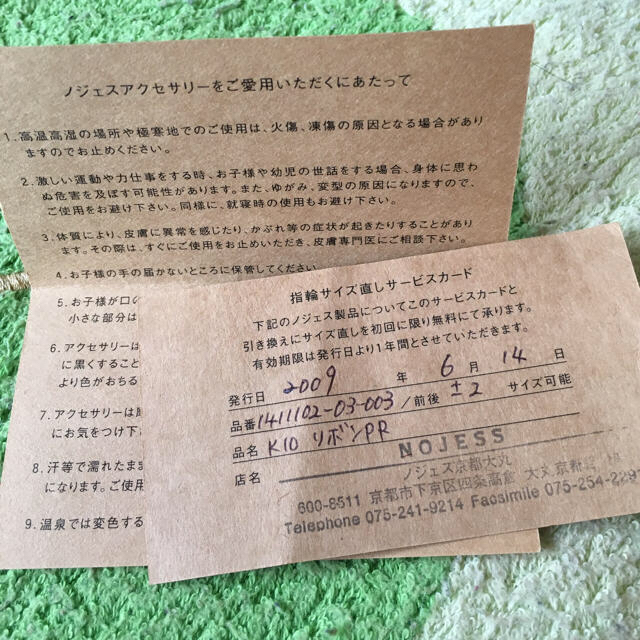 ノジェスアクセサリーをご愛用いただくにあたって
1. 高温高湿の場所や極寒地でのご使用は、火傷、凍傷の原因となる場合があり
ますのでお止めください。
2. 激しい運動や力仕事をする時、お子様や幼児の世話をする場合、身体に思わ
ぬ危害を及ぼす可能性があります。また、ゆがみ、変型の原因になりますので、
ご使用をお避け下さい。同様に、就寝時の使用もお避け下さい。
3. 体質により、皮膚に異常を感じたり、かぶれ等の症状が起きたりすることがあり
ます。その際は、すぐにご使用をお止めいただき、皮膚専門医にご相談下さい。
4. お子様の手の届かないところに保管してください
5. お子様が口の
小さな部分は
6. アクセサリーは
に黒くすること
より色がおちる
7. アクセサリーは
にお気をつけ下
8. 汗等で濡れたまま
になります。ご使用
9. 温泉では変色する
指輪サイズ直しサービスカード
下記のノジェス製品についてこのサービスカードと
引き換えにサイズ直しを初回に限り無料にて承ります。
有効期限は発行日より1年間とさせていただきます。
発行日 2009 年 6 月 14 日
品番 1411102-03-003 /前後 ±2 サイズ可能
品名 K10 リボンPR
店名 NOJESS
ノジェス京都大丸
600-8511 京都市下京区四条高倉 大丸京都店
Telephone 075-241-9214 Facsimile 075-254-229